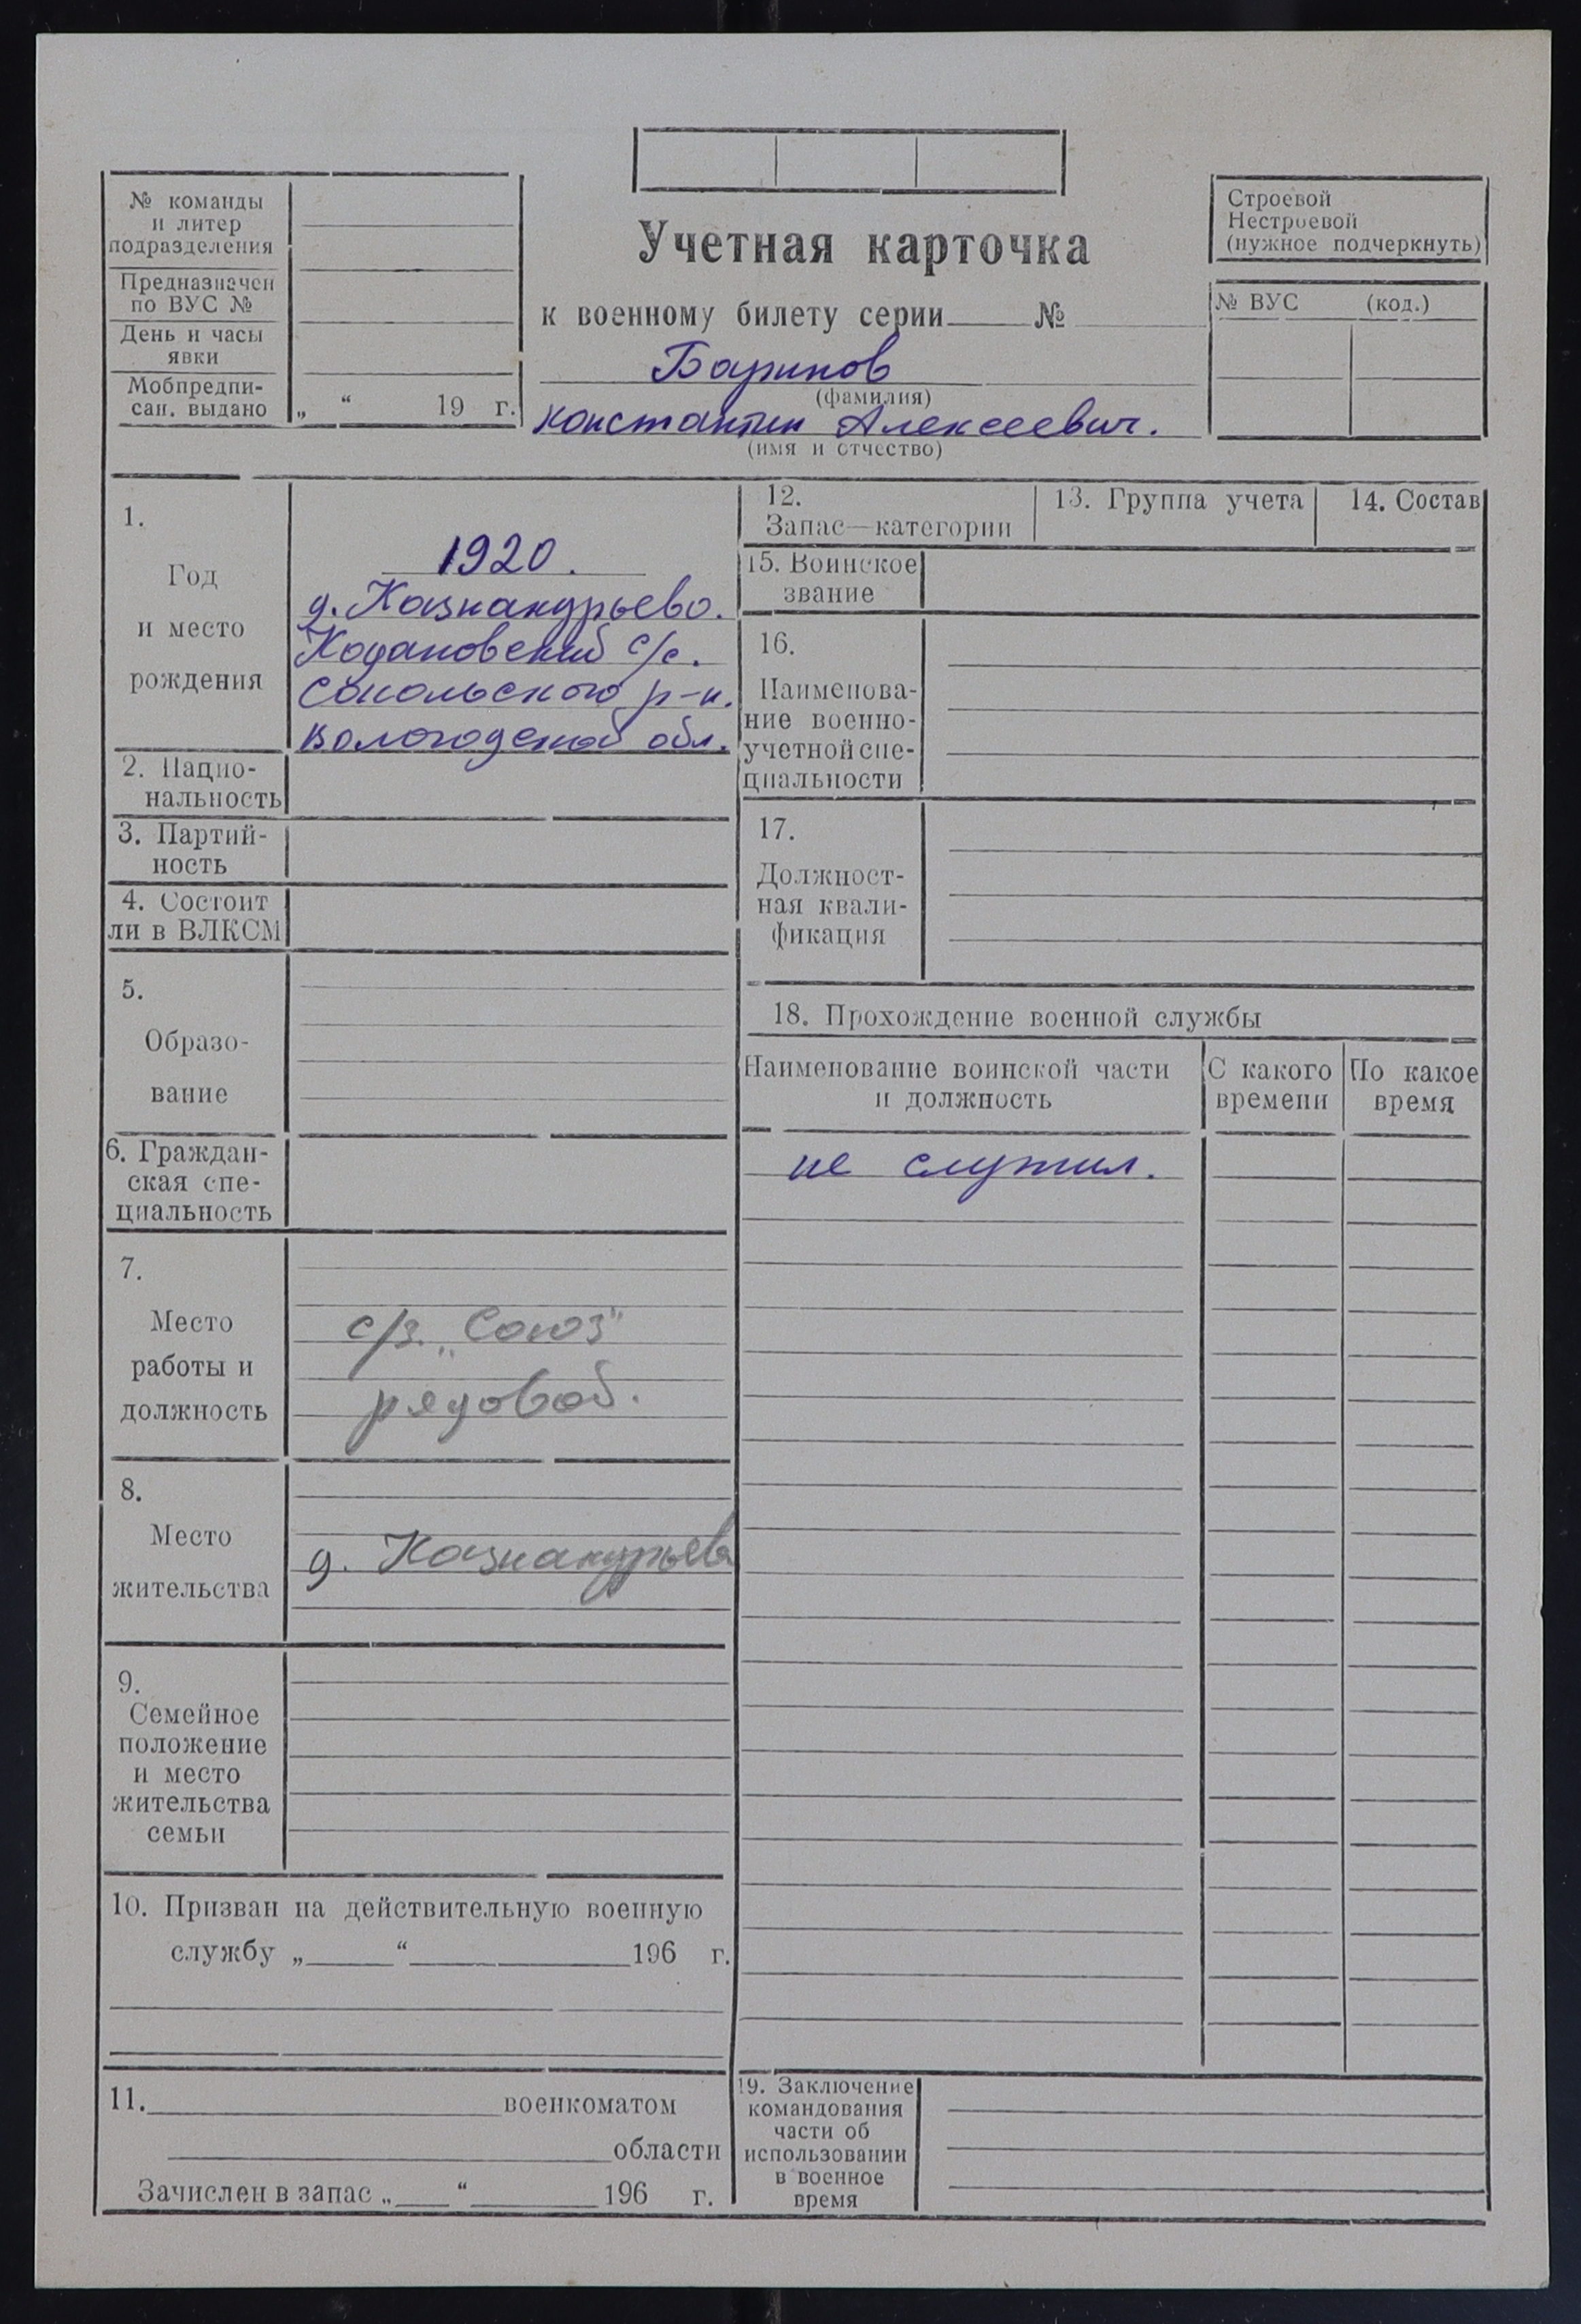 № команды
и литер
подразделения
Предназначен
по ВУС №
День и часы
явки
Мобпредпи-
сан. выдано
„ “ 19 г.
Учетная карточка
к военному билету серии № 
Баринов
(фамилия)
Константин Алексеевич.
(имя и отчество)
Строевой
Нестроевой
(нужное подчеркнуть)
№ ВУС (код.)
1.
Год
и место
рождения
1920.
д. Казнакурьево.
Кодановский с/с.
Сокольского р-н.
Вологодской обл.
2. Нацио-
нальность
3. Партий-
ность
4. Состоит
ли в ВЛКСМ
5.
Образо-
вание
6. Граждан-
ская спе-
циальность
7.
Место
работы и
должность
с/з. „Союз"
рядовой.
8.
Место
жительства
д. Казнакурьево
9.
Семейное
положение
и место
жительства
семьи
10. Призван на действительную военную
службу „ “ 196 г.
11. военкоматом
области
Зачислен в запас „ “ 196 г.
12.
Запас—категории
13. Группа учета
14. Состав
15. Воинское
звание
16.
Наименова-
ние военно-
учетной спе-
циальности
17.
Должност-
ная квали-
фикация
18. Прохождение военной службы
Наименование воинской части
и должность
С какого
времени
По какое
время
не служил.
19. Заключение
командования
части об
использовании
в военное
время